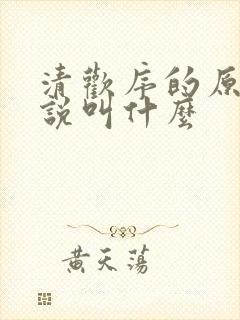 清歡序的原
說叫什麼
黃天蕩